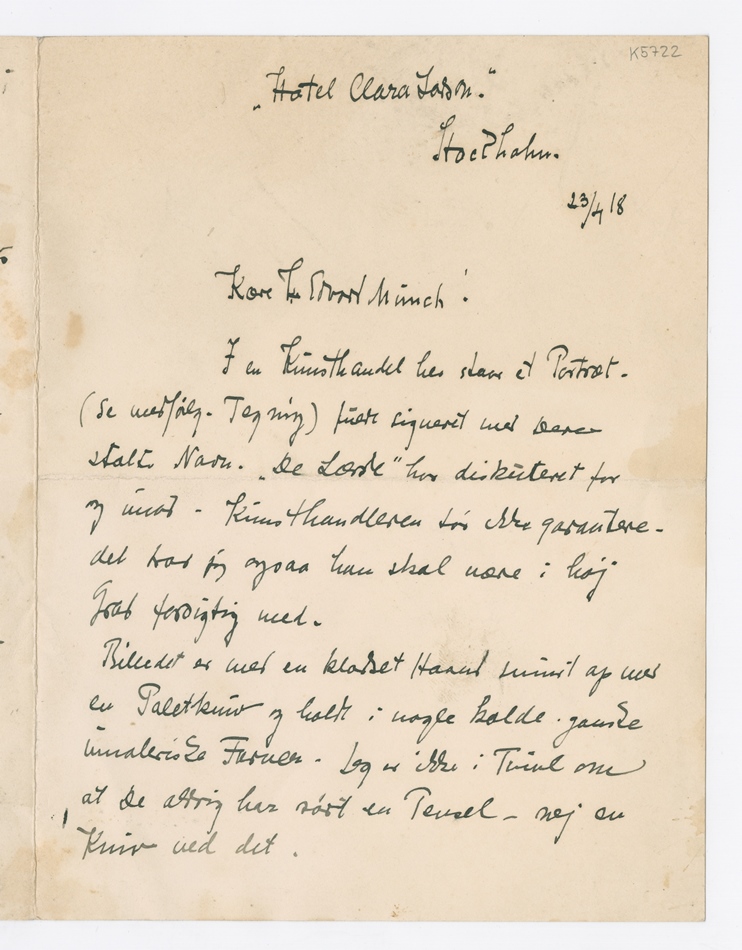 K5722
„Hotel Clara Larson."
Stockholm.
23/4 18
Kære Hr Edvard Münch!
I en Kunsthandel her staar et Portræt.
(se medfølg. Tegning) fuldt signeret med Deres
stolte Navn. „De Lærde" har diskuteret for
og imod - Kunsthandleren tør ikke garantere -
det tror jeg ogsaa han skal være i høj
Grad forsigtig med.
Billedet er med en klodset Haand smurt op med
en Paletkniv og holdt i nogle kolde - ganske
umaleriske Farver - Jeg er ikke i Tvivl om
at De aldrig har rørt en Pensel - nej en
Kniv ved det.